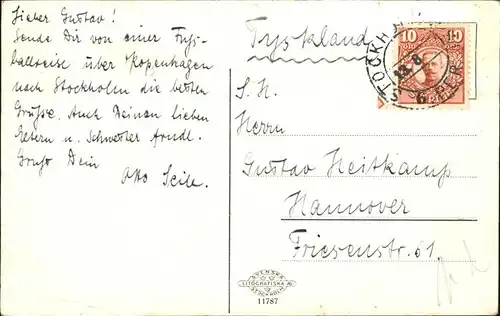 Lieber Gustav!
Sende Dir von einer Fuß-
ballreise über Kopenhagen
nach Stockholm die besten
Grüße. Auch Deinen lieben
Eltern u. Schwester Arndl.
Gruß Dein
Otto
Tyskland
10 10
S. H.
Herrn
Gustav Heitkamp
Hannover
Friesenstr. 61.
SVENSKA
LITOGRAFISKA AB
STOCKHOLM
11787